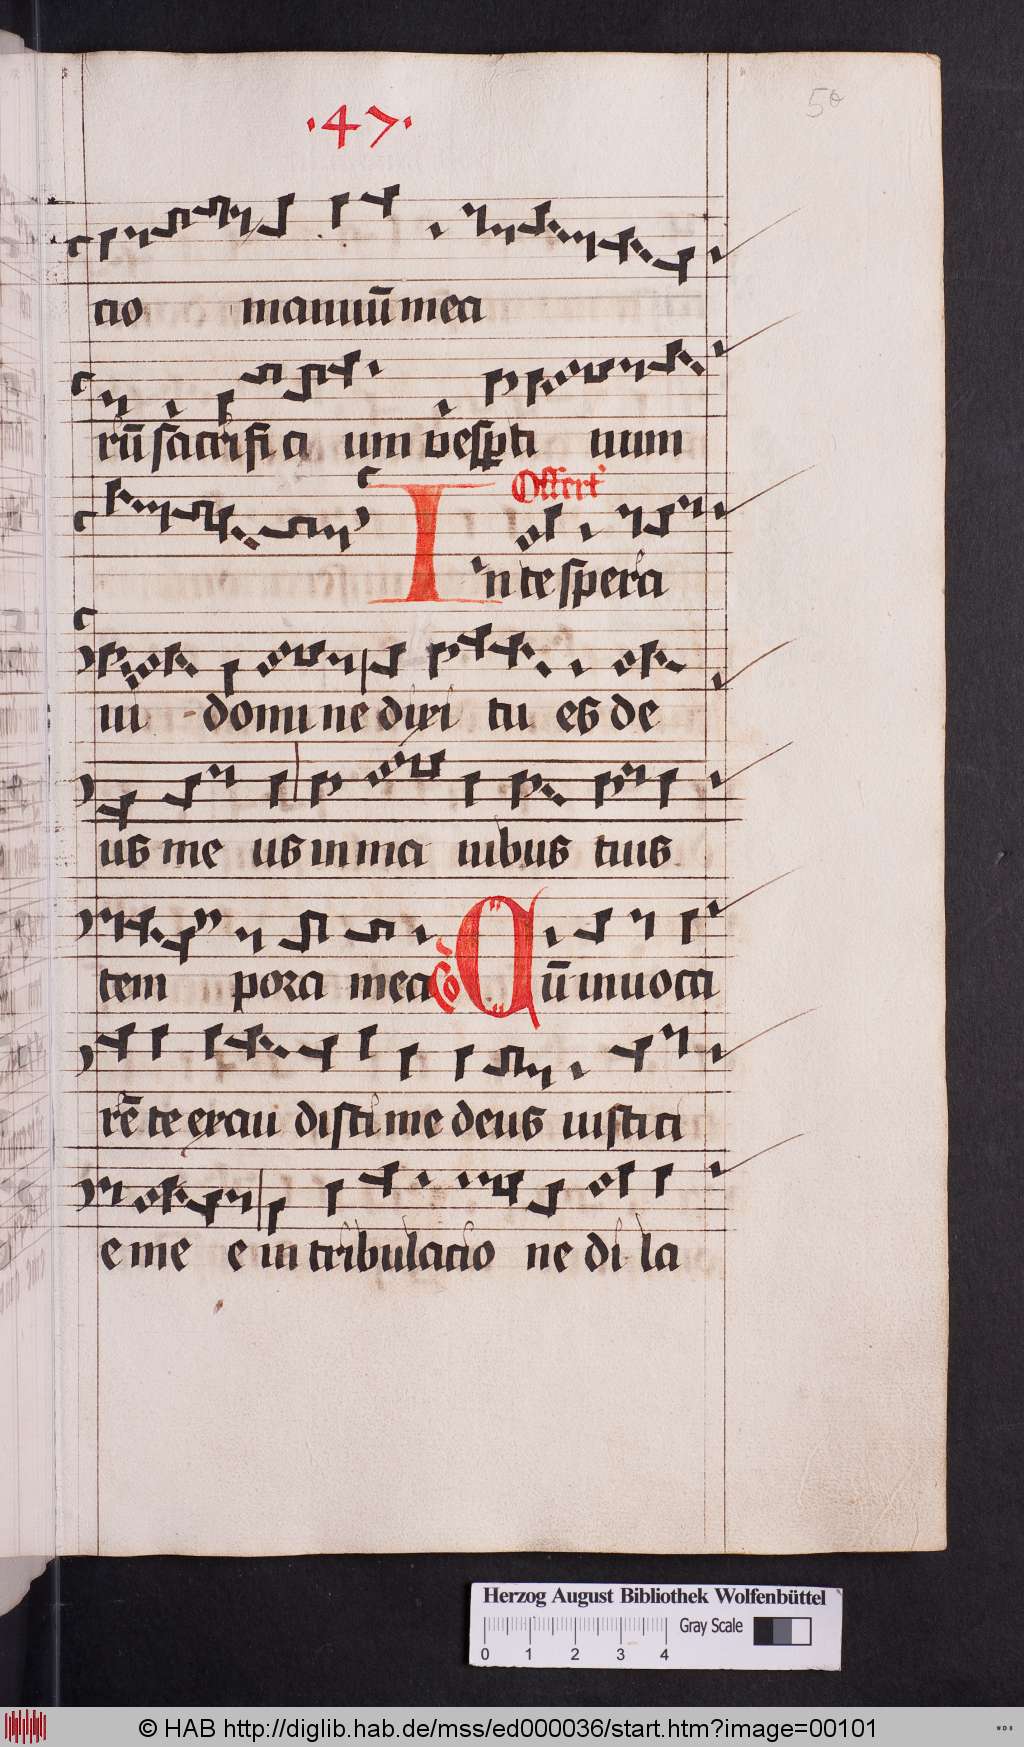 ·47·
50
cio manuū mea
rū sacrifici um vesp̱ti num
Offert'
In te spera
ui domine dixi tu es de
us me us in ma nibus tuis
tem pora mea Cō Cū inuoca
rē te exau disti me deus iusti ci
e me e in tribulacio ne di la
Herzog August Bibliothek Wolfenbüttel
Gray Scale
0 1 2 3 4
© HAB http://diglib.hab.de/mss/ed000036/start.htm?image=00101